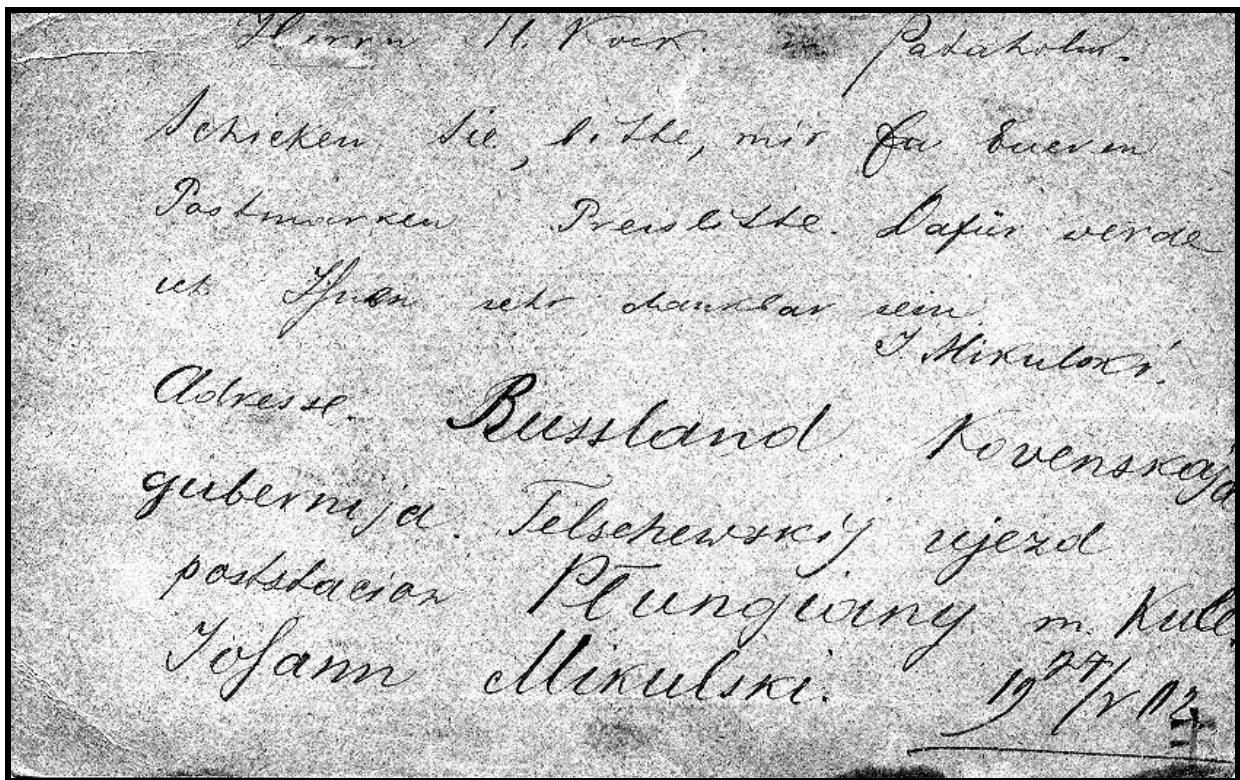 Herrn M. Kock. in Pataholm.
Schicken Sie, bitte, mir Eueren
Postmarken Preislitte. Dafür werde
ich Ihnen sehr dankbar sein
J. Mikulski.
Adresse. Russland. Kovenskaja
gubernija. Telschewskij ujezd
poststacion Płungiany m. Kull
Johann Mikulski.
19 27/V 02